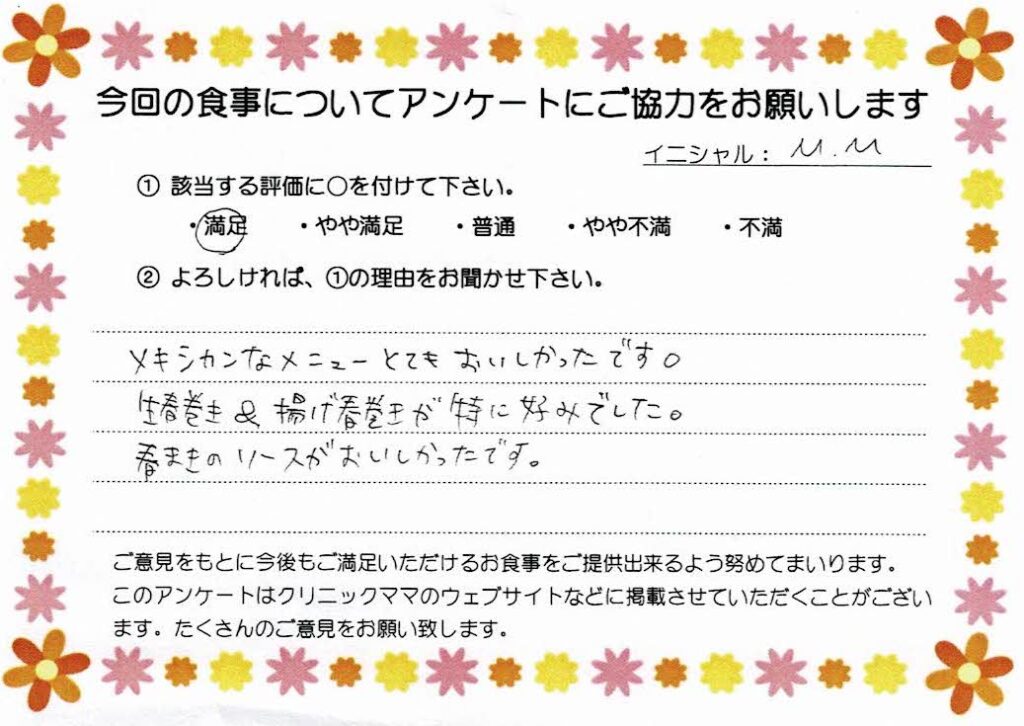 今回の食事についてアンケートにご協力をお願いします
イニシャル： M.M
① 該当する評価に○を付けて下さい。
・満足 ・やや満足 ・普通 ・やや不満 ・不満
② よろしければ、①の理由をお聞かせ下さい。
メキシカンなメニューとてもおいしかったです。
生春巻き & 揚げ春巻きが特に好みでした。
春まきのソースがおいしかったです。
ご意見をもとに今後もご満足いただけるお食事をご提供出来るよう努めてまいります。
このアンケートはクリニックママのウェブサイトなどに掲載させていただくことがござい
ます。たくさんのご意見をお願い致します。